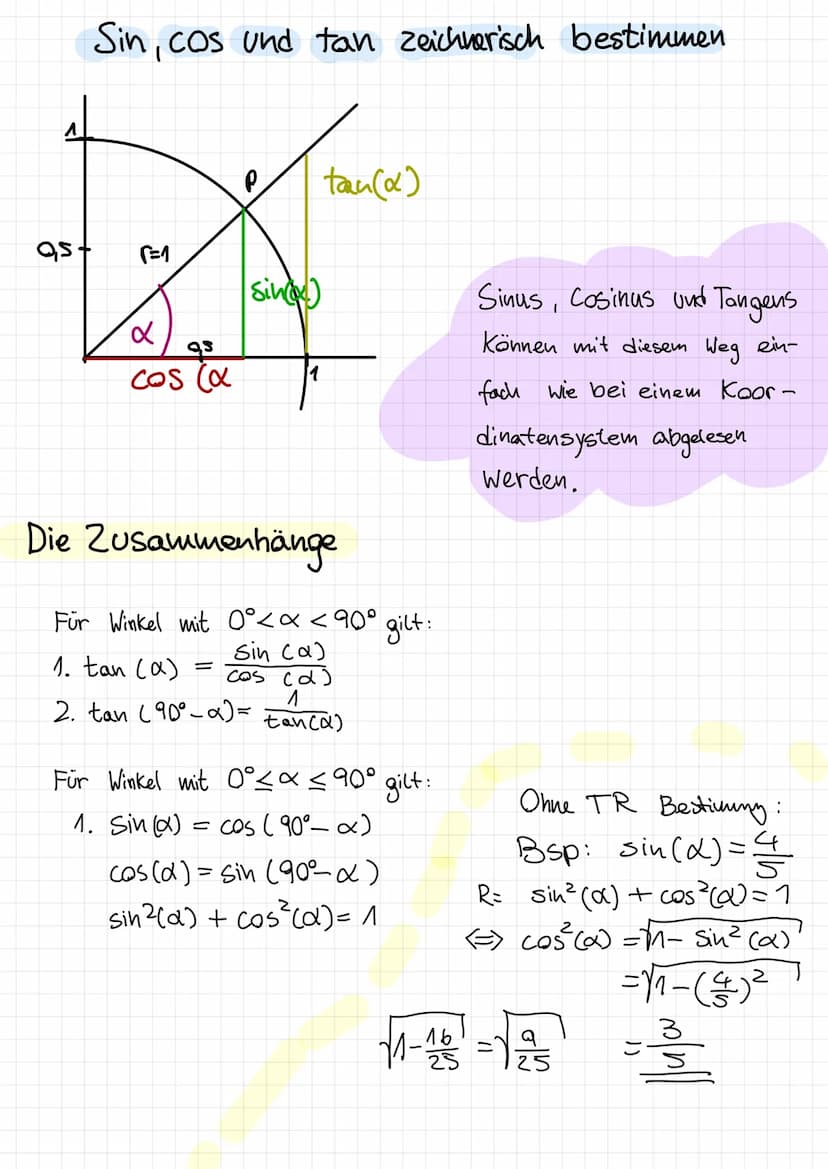 Sin, cos und tan zeichnerisch bestimmen
1
P
tan(α)
0,5
r=1
sin(α)
α
0,5
cos (α
1
Sinus, Cosinus und Tangens
können mit diesem Weg ein-
fach wie bei einem Koor-
dinatensystem abgelesen
werden.
Die Zusammenhänge
Für Winkel mit 0°<α<90° gilt:
1. tan (α) = sin (α) / cos (α)
2. tan (90°-α)= 1 / tan(α)
Für Winkel mit 0°≤α≤90° gilt:
1. Sin(α) = cos (90°-α)
cos(α) = sin (90°-α)
sin²(α) + cos²(α)= 1
Ohne TR Bestimmung:
Bsp: sin(α)=4/5
R= sin²(α) + cos²(α)=1
⇔ cos²(α) =√1- sin²(α)
=√1-(4/5)²
√1-16/25 =√9/25 =3/5